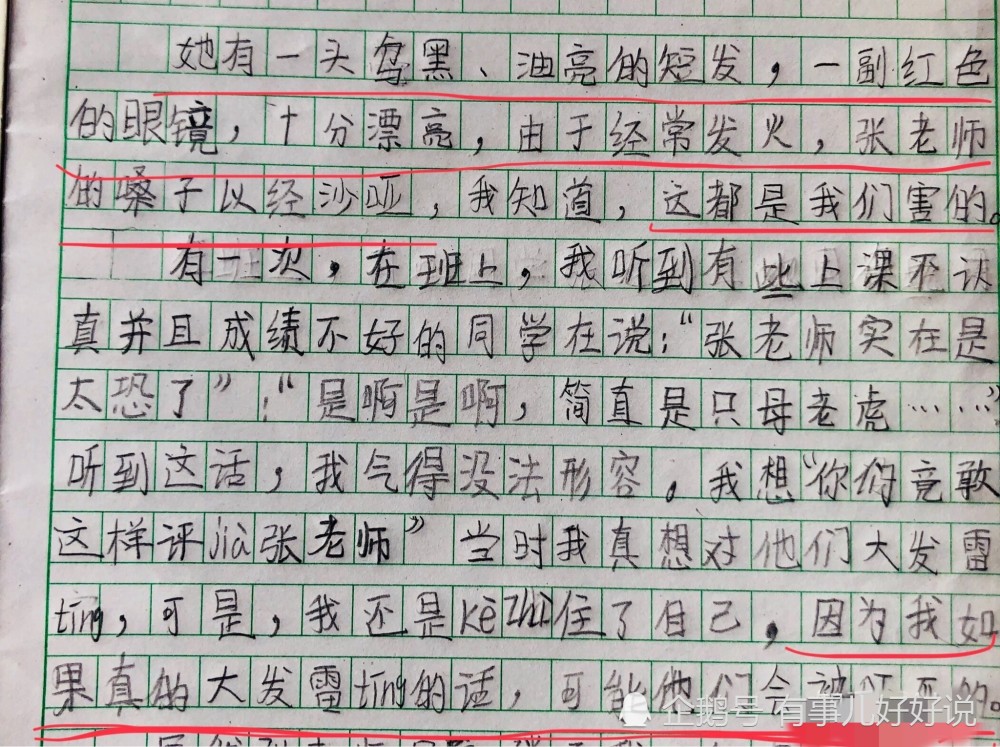 她有一头乌黑、油亮的短发，一副红色
的眼镜，十分漂亮，由于经常发火，张老师
的嗓子以经沙哑，我知道，这都是我们害的。
有一次，在班上，我听到有些上课不认
真并且成绩不好的同学在说：“张老师实在是
太恐了”！“是啊是啊，简直是只母老虎……”
听到这话，我气得没法形容。我想“你们竟敢
这样评jià张老师”当时我真想对他们大发雷
tíng，可是，我还是kè zhì住了自己，因为我如
果真的大发雷tíng的话，可能他们会被
的。
企鹅号 有事儿好好说